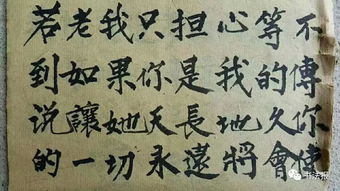 若老我只担心等不
到如果你是我的傳
说讓她天長地久你
的一切永遠將會使
书法报